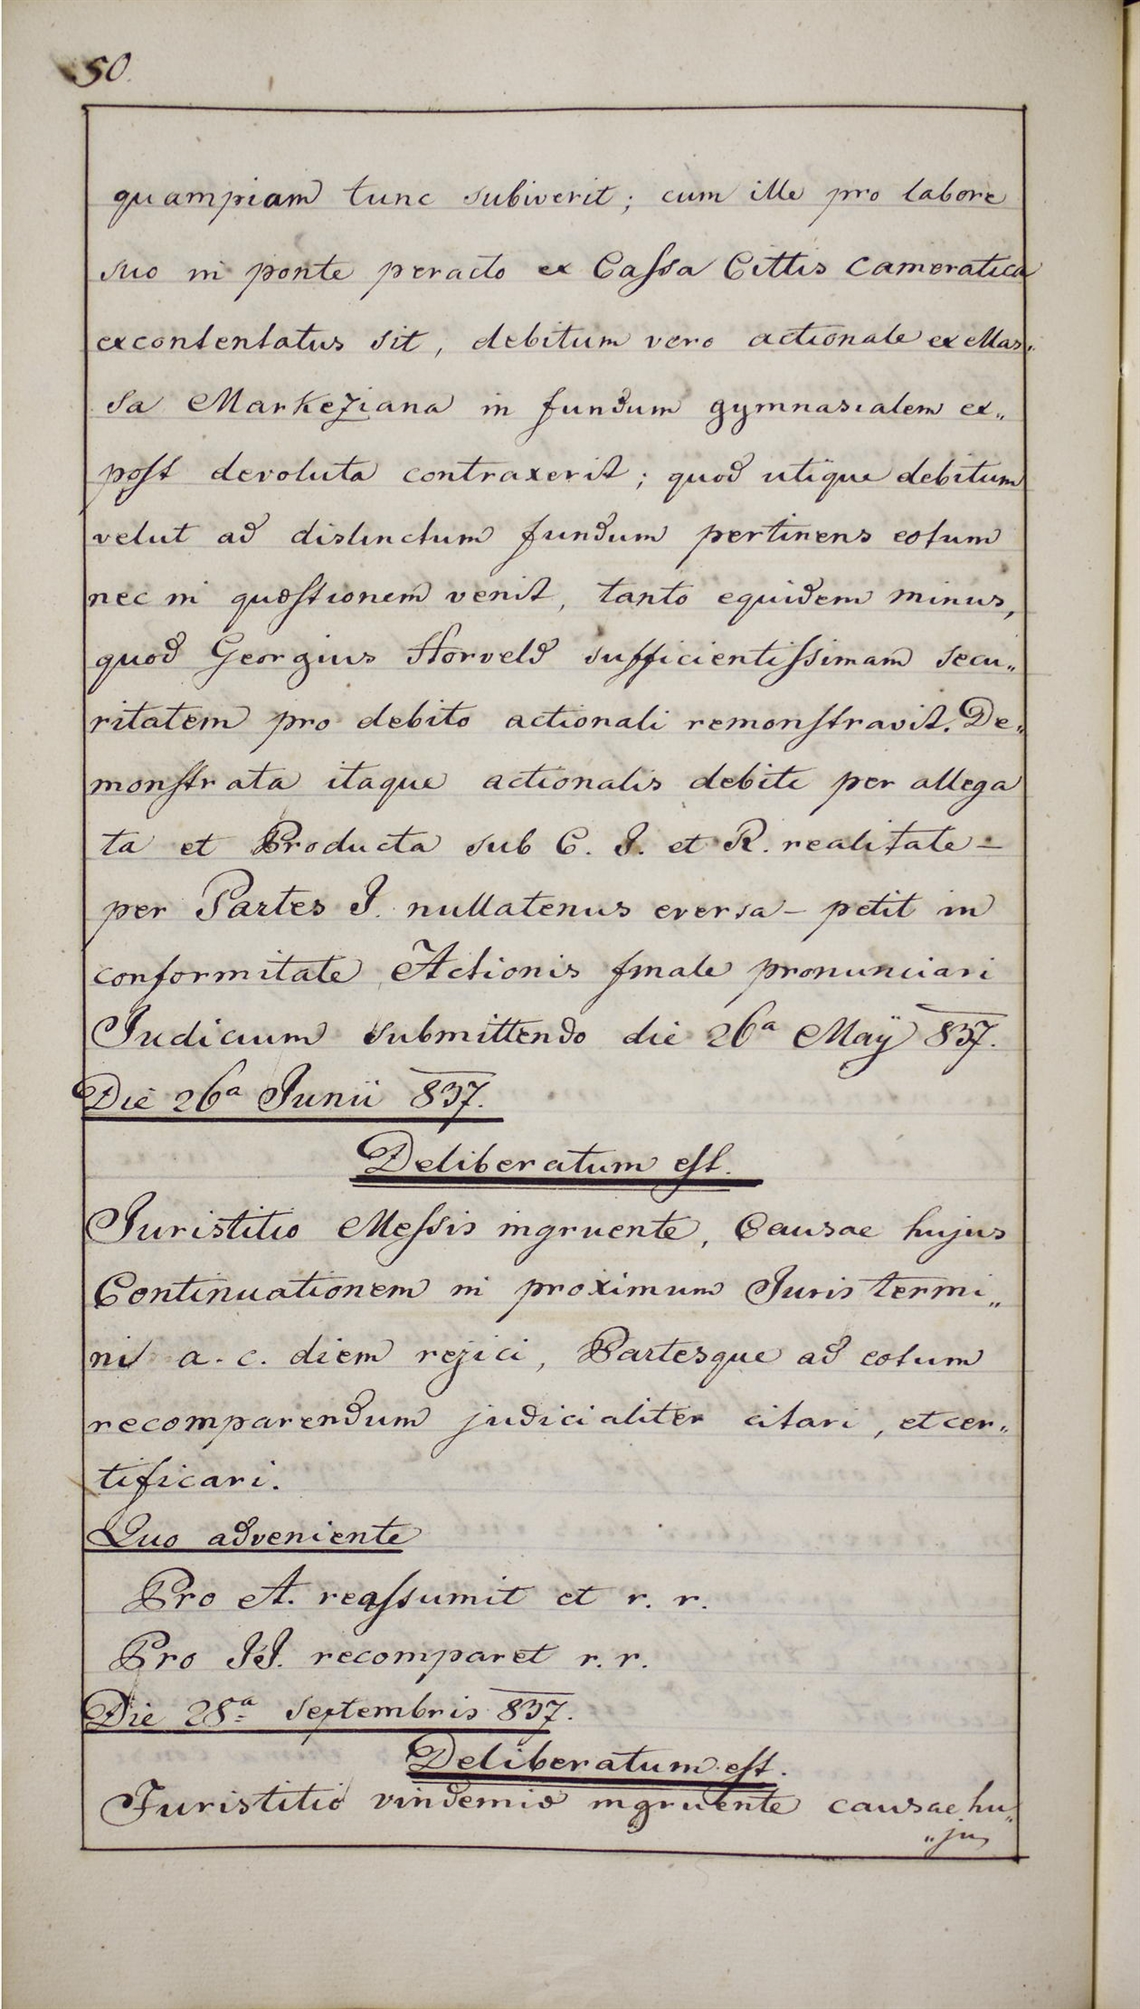 50.
quampiam tunc subiverit; cum ille pro labore
suo in ponte peracto ex Cassa Cittis Cameratica
excontentatus sit, debitum vero actionale ex Mas„
sa Markeziana in fundum gymnasialem ex„
post devoluta contraxerit; quod utique debitum
velut ad distinctum fundum pertinens eotum
nec in quæstionem venit, tanto equidem minus,
quod Georgius Horveld sufficientissimam secu„
ritatem pro debito actionali remonstravit. De„
monstrata itaque actionalis debiti per allega
ta et Producta sub C. I. et R. realitate –
per Partes I. nullatenus eversa – petit in
conformitate Actionis finale pronunciari
Judicium submittendo die 26a Maÿ 837.
Die 26a Junii 837.
Deliberatum est.
Juristitio Messis ingruente, Causae hujus
Continuationem in proximum Juris termi„
ni a. c. diem rejici, Partesque ad eotum
recomparendum judicialiter citari, et cer„
tificari.
Quo adveniente
Pro A. reassumit et r. r.
Pro II. recomparet r. r.
Die 28a Septembris 837.
Deliberatum est.
Juristitio vindemiæ ingruente causae hu„
„jus